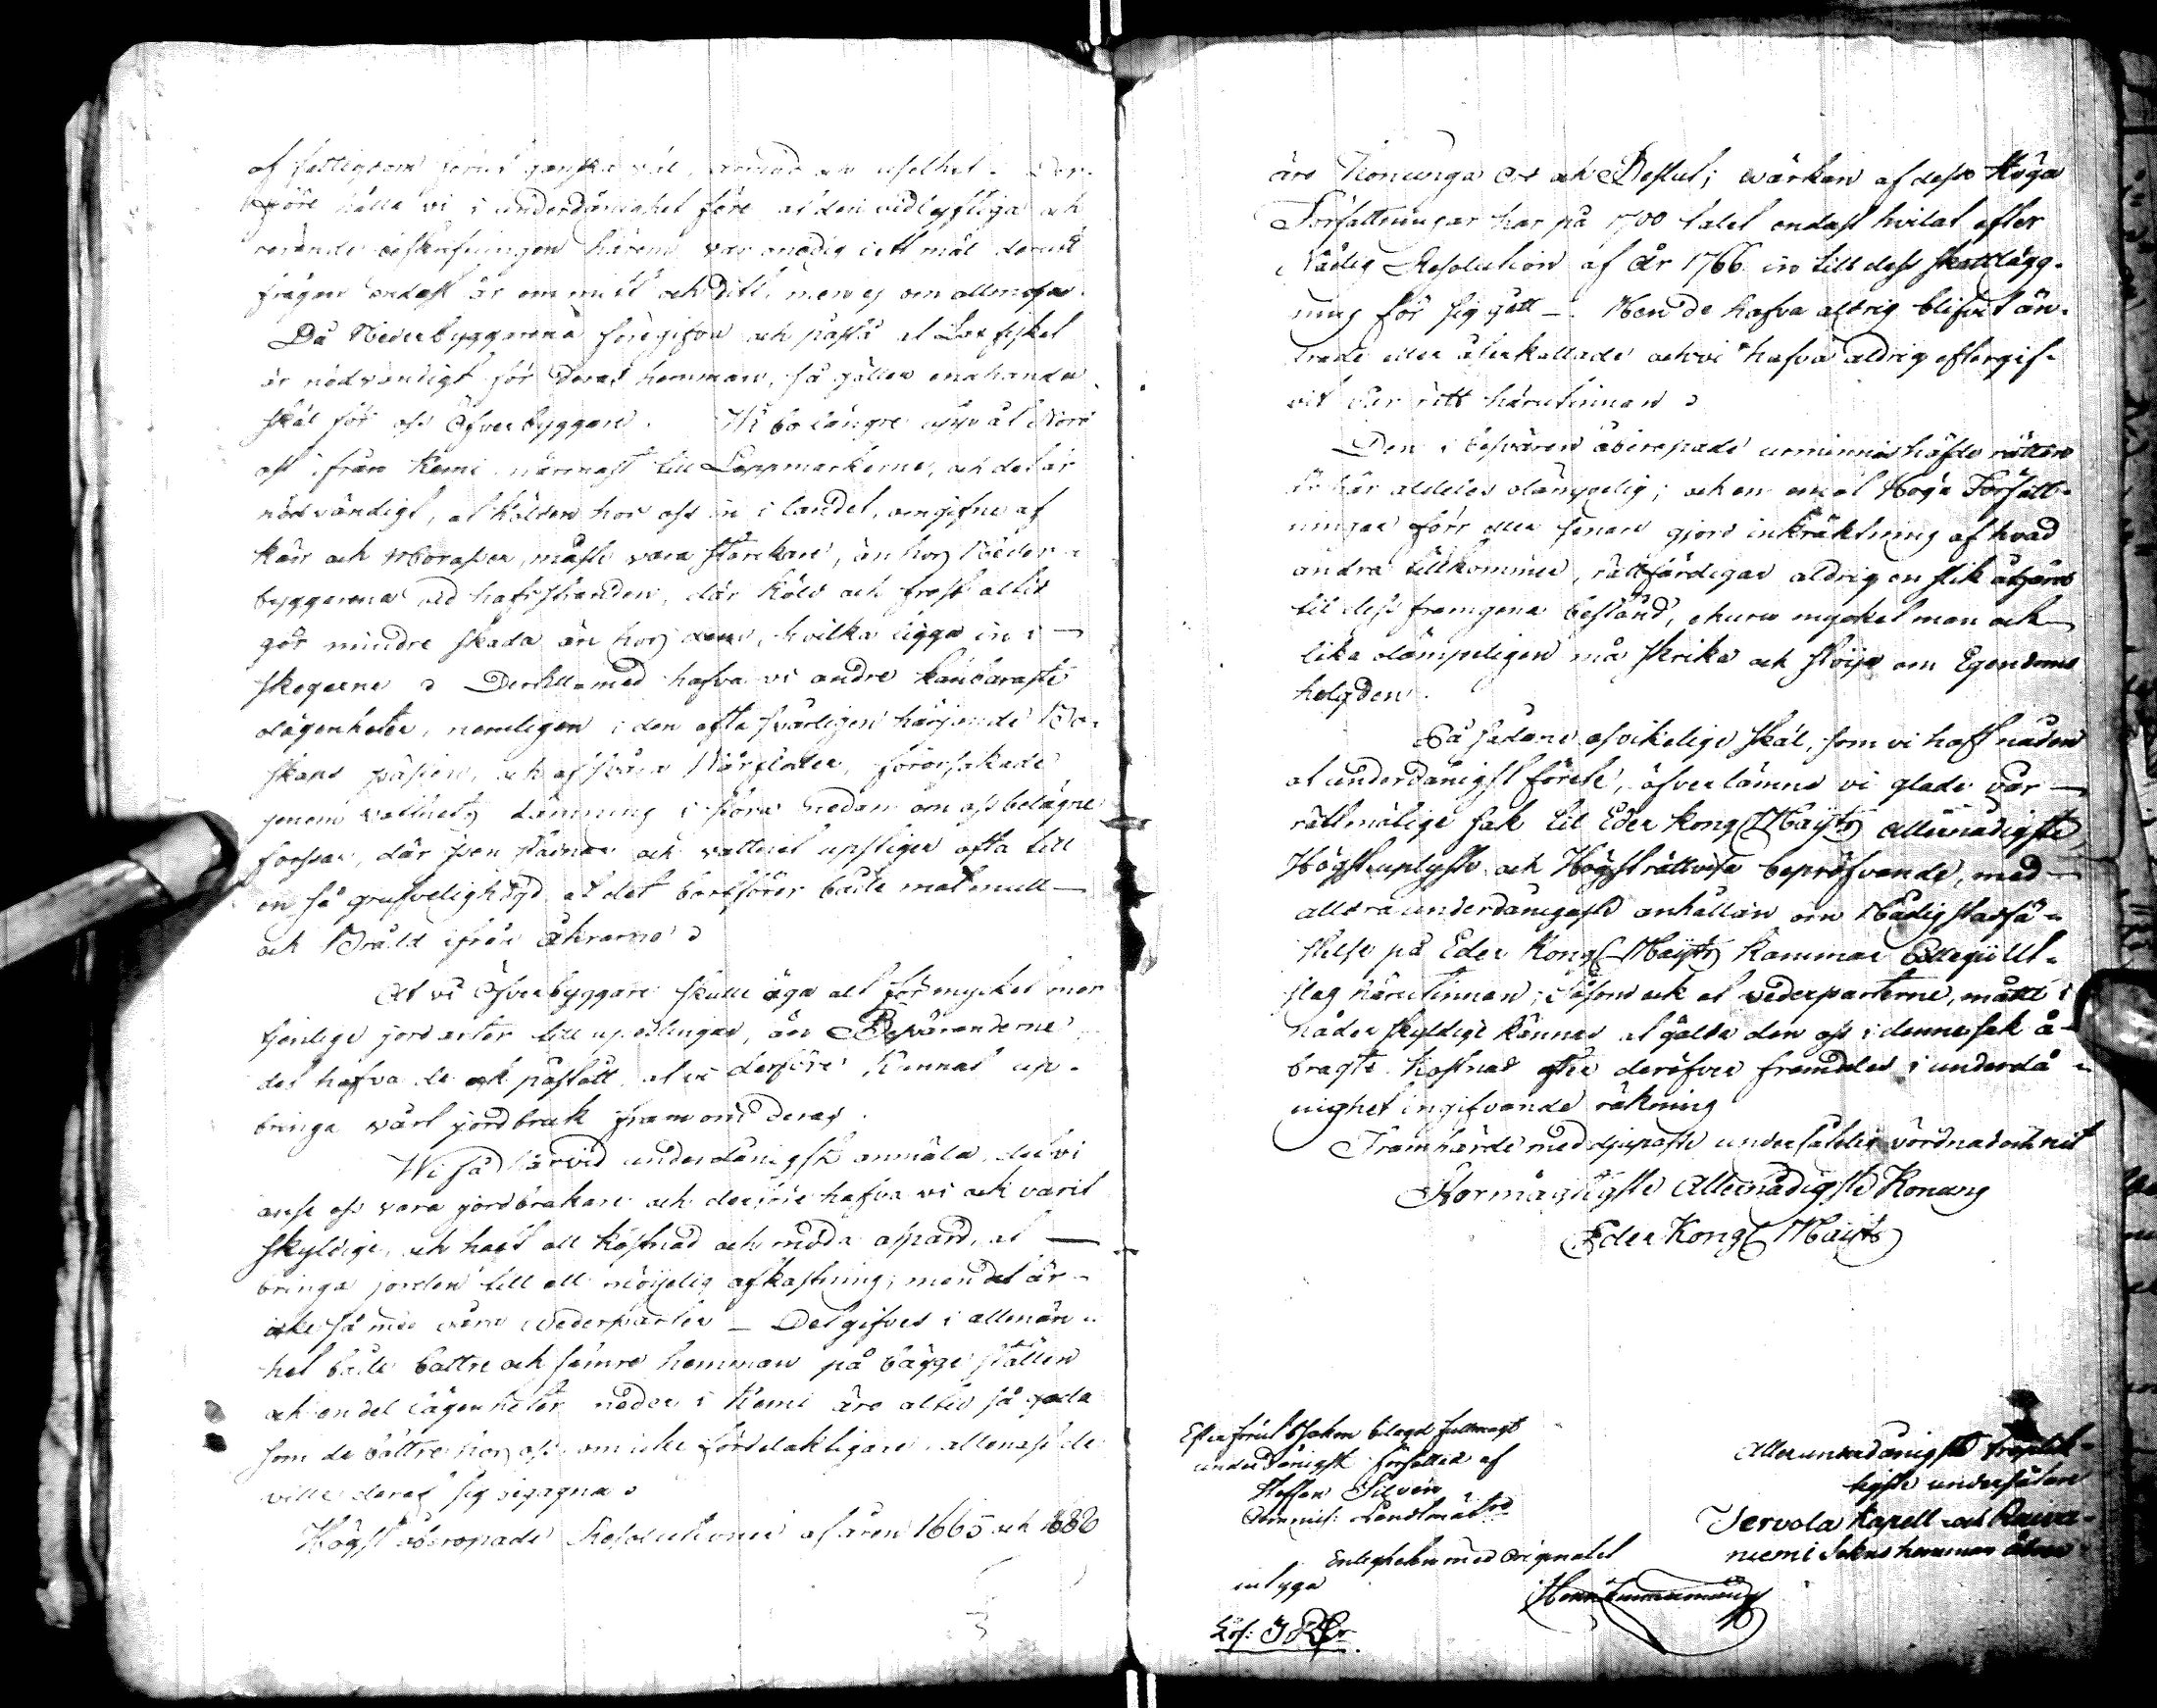 af fattigdom
före hålla vi i underdånighet före at den vidlyftiga och
rörande beskrifningen härom var onödig i ett mål derest
frågan endast är om mitt och ditt, men ej om allmosa.
Då Nederbyggarena föregifva och påstå at Lax fisket
är nödvändigt för deras hemman, så gäller enahanda
skäl för oss Öfverbyggare. Wi bo längre upp åt Norr
ost ifrån Kemi närmast till Lappmarkerne, och det är
nödvändigt, at kölden hos oss in i landet, omgifne af
kärr och Morasser, måste vara starkare, än hos Neder-
byggarena vid hafsstranden, där köld och frost altid
gör mindre skada än hos dem, hvilka ligga in i
skogarne. Dertillmed hafva vi andre kånbaraste
olägenheter, nemligen i den ofta svårligen härjande Bo-
skaps påsten, och af svåra Vårfloder, förorsakade
genom vattnets dämning i stora nedan om oss belägne
forssar, där isen stadnar och vattnet upstiger ofta till
en så grufvelig högd at det bortförer både matmull
och Bråld ifrån åkrarne.
At vi Öfverbyggare skulle äga alt för mycket mer
tjenlige jordarter till upodlingar, än Besväranderne
det hafva de ock påstått, at vi derföre kunnat up-
bringa vårt jordbruk fram om deras.
Wi få härvid underdånigst anmäla, det vi
anse oss vara jordbrukare och derföre hafva vi ock varit
skyldige, och haft all kostnad och möda ospard, at
bringa jorden till all möijelig afkastning; men det är
icke så med våra wederparter - Det gifves i allmän-
het både bättre och sämre hemman på bägge ställen
och en del lägenheter neder i Kemi äro altid så goda
som de bättre hos oss om icke fördelaktigare, allenast de
ville deraf sig begagna.
Högst åberopade Resolutioner af åren 1665 och 1686
äro Konunga Ord och Beslut; wärkan af desse Höga
Författningar har på 1700 talet endast hvilat efter
Nådig Resolution af år 1766 in till dess skattlägg-
ning för sig gått -. Men de hafva aldrig blifvit än-
drade eller återkallade och vi hafva aldrig eftergif-
vit vår rätt härutinnan.
Den i besvären åberopade urminnes häfde rätten
är här aldeles olämpelig; och en emot Höga Författ-
ningar förr eller senare gjord inkräktning af hvad
andra tillkommer, rättfärdigar aldrig en slik åtgärd
til dess framgena bestånd, ehuru mycket man och
lika olämpeligen må skrika och stöija om Egendoms
helgden.
På sådane osvikelige skäl, som vi haft nåden
at underdånigst förete, öfverlämne vi glade vår
rättmätige sak til Eder Kongl Maijts Allernådigste
Högstuplyste och Högsträttvisa bepröfvande, med
alldra underdånigaste anhållan om Nådig stadfä-
stelse på Eder Kongl Maijts Kammar Collegii Ut-
slag härutinnan; såsom ock at wederparterne, måtte i
nåder skyldige kännas at gälda den oss i denna sak å-
bragte kostnad efter deröfver framdeles i underdå-
nighet ingifvande räkning
Framhärde med djupaste undersåtelig vördnad och nit
Stormägtigste Allernådigste Konung
Eder Kongl Maijts
Efter förut i saken bilagd fullmagt
underdånigst författad af
Staffan
Commis: Landtmätare
Allerunderdånigste
tropligtigste undersåtare
Tervola Kapell och Ruova-
niemi Sokns hemmans åboer
Enligheten med Originalet
intyga
Lös: